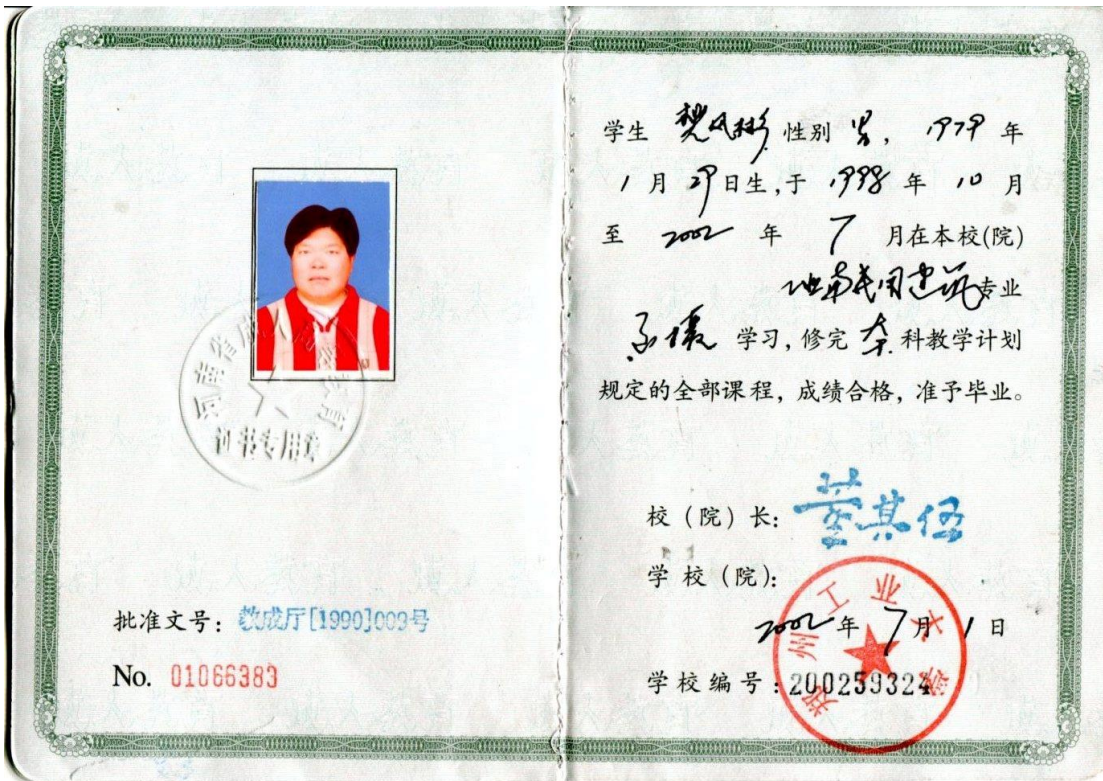 河南省成人高等教育
证书专用章
批准文号：教成厅[1990]009号
No. 01066383
学生 樊凤彬 性别 男，1979 年
1 月 29 日生，于 1998 年 10 月
至 2002 年 7 月在本校(院)
工业与民用建筑专业
函授 学习，修完 本 科教学计划
规定的全部课程，成绩合格，准予毕业。
校（院）长：董其伍
学 校（院）：
郑州工业大学
2002 年 7 月 1 日
学校编号：200259324